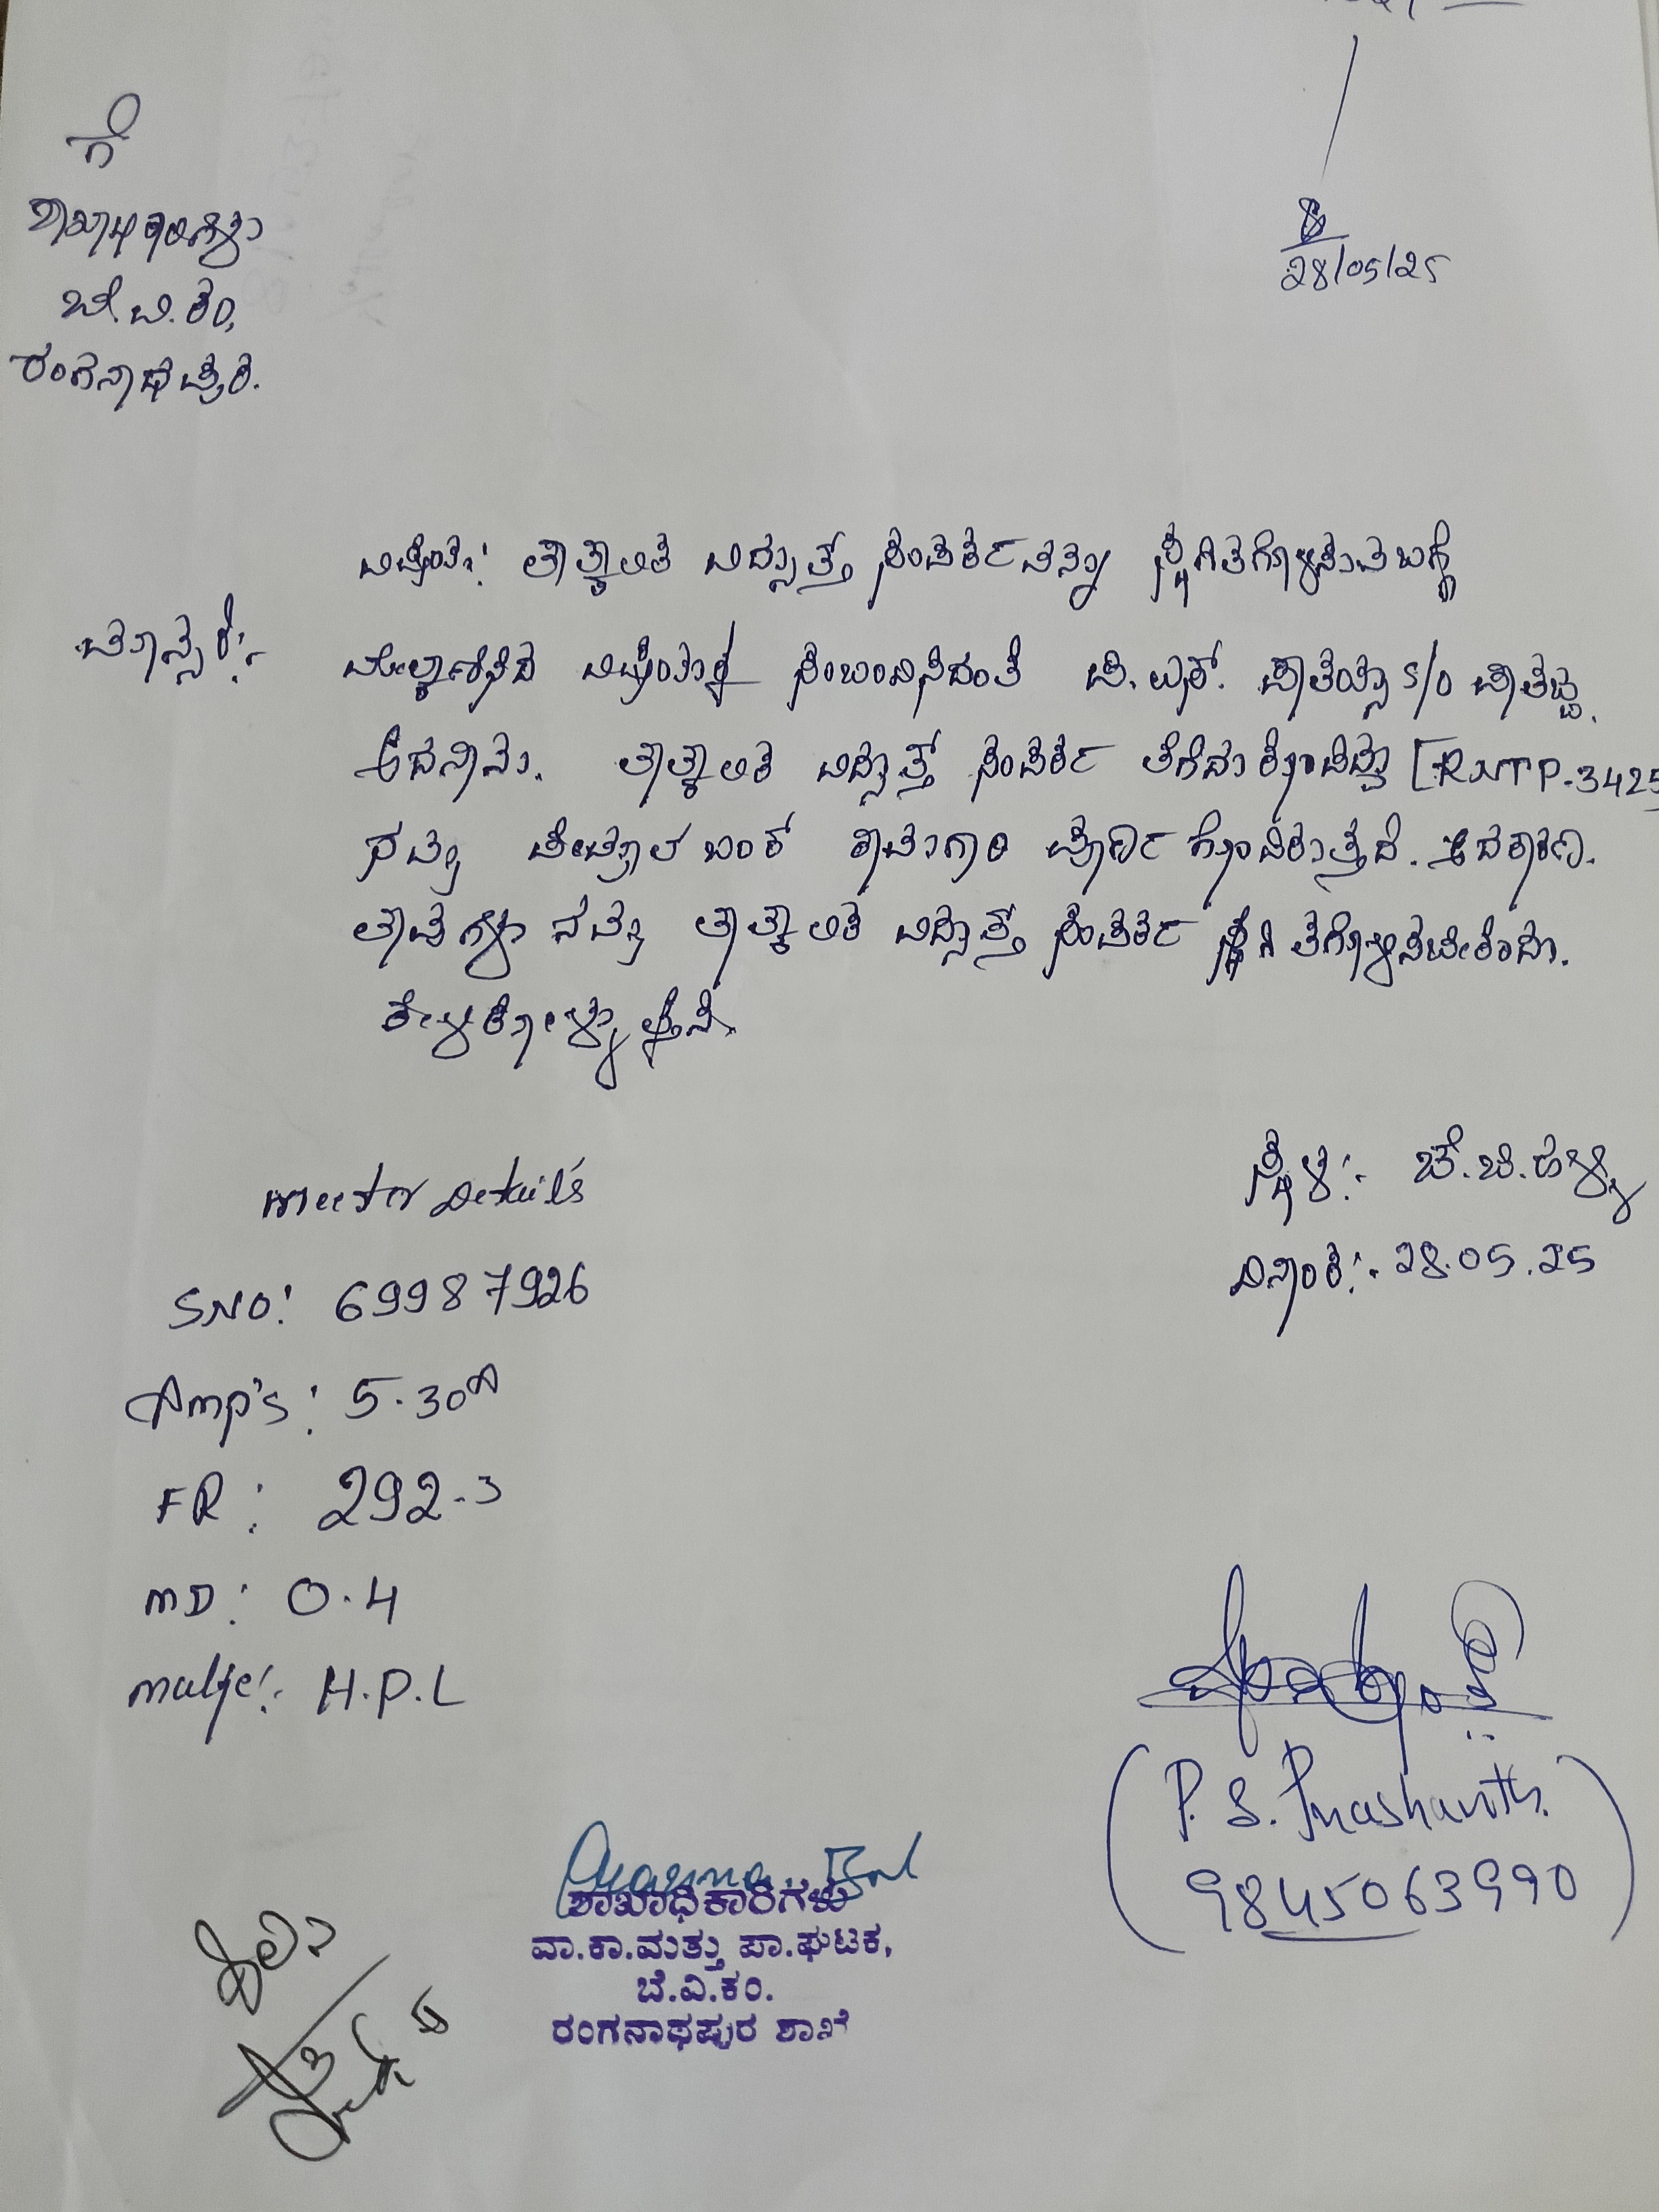 28/05/25
ಗೆ
ಶಾಖಾಧಿಕಾರಿಗಳು
ಬೆ.ವಿ.ಕಂ,
ರಂಗನಾಥಪುರ.
ವಿಷಯ: ತಾತ್ಕಾಲಿಕ ವಿದ್ಯುತ್ ಸಂಪರ್ಕವನ್ನು ಸ್ಥಗಿತಗೊಳಿಸುವ ಬಗ್ಗೆ
ಮಾನ್ಯರೆ:-
ಮೇಲ್ಕಾಣಿಸಿದ ವಿಷಯಕ್ಕೆ ಸಂಬಂಧಿಸಿದಂತೆ ಪಿ. ಎಸ್. s/o
ಆದ ನಾನು. ತಾತ್ಕಾಲಿಕ ವಿದ್ಯುತ್ ಸಂಪರ್ಕ ತೆಗೆದುಕೊಂಡಿದ್ದು [RNTP-3425
ನಮ್ಮ ಪೆಟ್ರೋಲ್ ಬಂಕ್ ಕಾಮಗಾರಿ ಪೂರ್ಣಗೊಂಡಿರುತ್ತದೆ. ಆದಕಾರಣ.
ತಾವುಗಳು ನಮ್ಮ ತಾತ್ಕಾಲಿಕ ವಿದ್ಯುತ್ ಸಂಪರ್ಕ ಸ್ಥಗಿತಗೊಳಿಸಬೇಕೆಂದು.
ಕೇಳಿಕೊಳ್ಳುತ್ತೇನೆ.
ಸ್ಥಳ:- ಜೆ.ಬಿ.ಹಳ್ಳಿ
ದಿನಾಂಕ:- 28.05.25
meeter Details
SNO: 69987926
Amp's: 5-30A
FR: 292-3
MD: 0.4
make:- H.P.L
(P. S. Prashanth.
9845063990)
ಶಾಖಾಧಿಕಾರಿಗಳು
ವಾ.ಕಾ.ಮತ್ತು ಪಾ.ಘಟಕ,
ಬೆ.ವಿ.ಕಂ.
ರಂಗನಾಥಪುರ ಶಾಖೆ